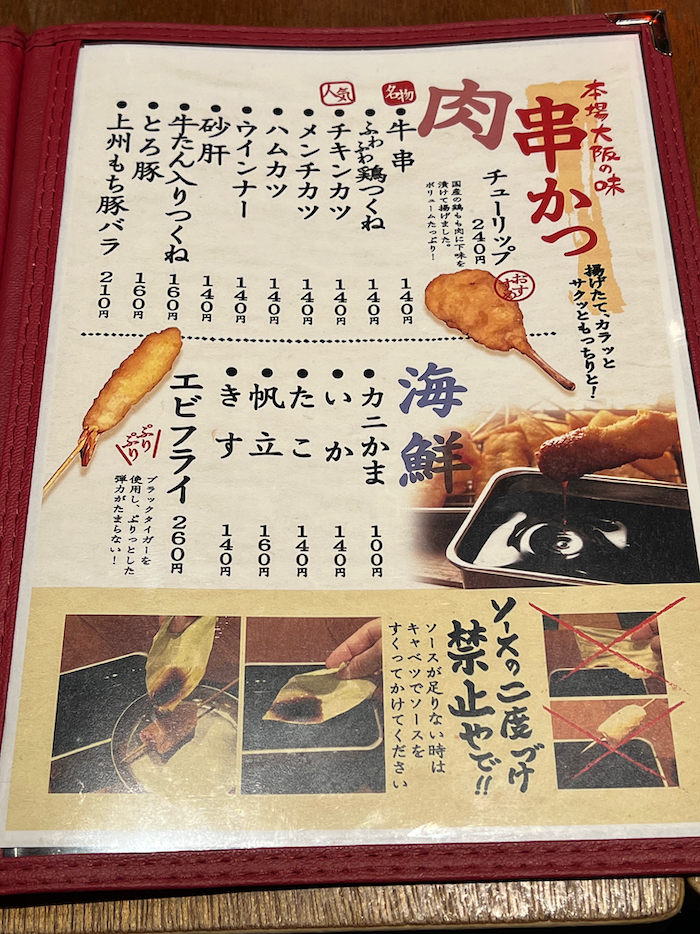 本場大阪の味
串かつ
揚げたて、カラッと
サクッともっちりと!
肉
チューリップ
240円
国産の鶏もも肉に下味を
漬けて揚げました。
ボリュームたっぷり!
おすすめ
名物
●牛串 140円
●ふわふわ鶏つくね 140円
人気
●チキンカツ 140円
●メンチカツ 140円
●ハムカツ 140円
●ウインナー 140円
●砂肝 140円
●牛たん入りつくね 160円
●とろ豚 160円
●上州もち豚バラ 210円
海鮮
●カニかま 100円
●いか 140円
●たこ 140円
●帆立 160円
●きす 140円
エビフライ 260円
ぷりぷり
ブラックタイガーを
使用し、ぷりっとした
弾力がたまらない!
ソースの二度づけ
禁止やで!!
ソースが足りない時は
キャベツでソースを
すくってかけてください